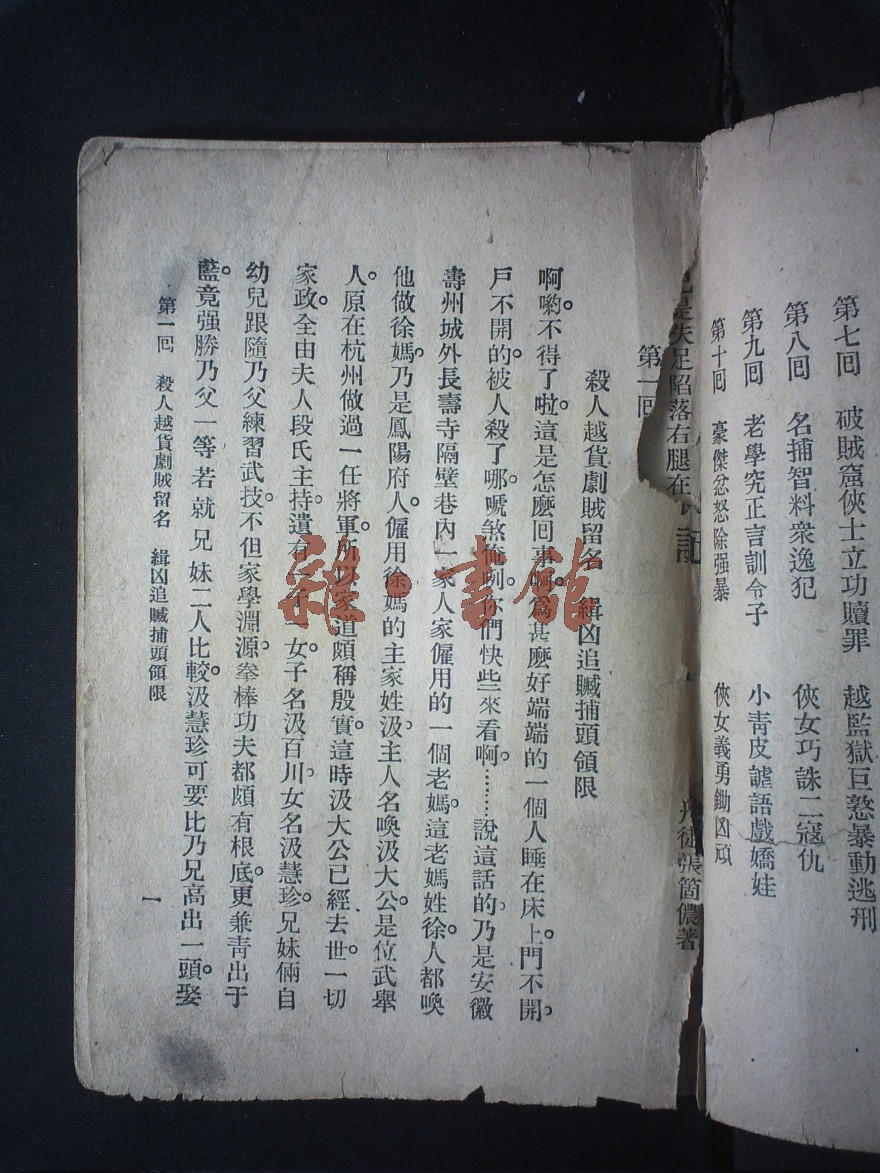 第七回　破賊窟俠士立功贖罪　越監獄巨憝暴動逃刑
第八回　名捕智料衆逸犯　俠女巧誅二寇仇
第九回　老學究正言訓令子　小靑皮謔語戲嬌娃
第十回　豪傑忿怒除强暴　俠女義勇鋤凶頑
是失足陷落右腿在
記
徒張箇儂著
第一回
殺人越貨劇賊留名　緝凶追贓捕頭領限
啊喲。不得了啦。這是怎麽回事啊。爲甚麽好端端的一個人睡在床上。門不開、
戶不開的。被人殺了哪。唬煞俺咧。你們快些來看啊。………說這話的、乃是安徽
壽州城外長壽寺隔壁巷內一家人家僱用的一個老媽。這老媽姓徐。人都喚
他做徐媽。乃是鳳陽府人。僱用徐媽的主家姓汲、主人名喚汲大公。是位武舉
人。原在杭州做過一任將軍。所以家道頗稱殷實。這時汲大公已經去世。一切
家政。全由夫人段氏主持。遺有一子一女。子名汲百川、女名汲慧珍。兄妹倆自
幼兒跟隨乃父練習武技。不但家學淵源。拳棒功夫都頗有根底。更兼靑出于
藍。竟强勝乃父一等。若就兄妹二人比較。汲慧珍可要比乃兄高出一頭。娶
第一回　殺人越貨劇賊留名　緝凶追贓捕頭領限
一
雜書館